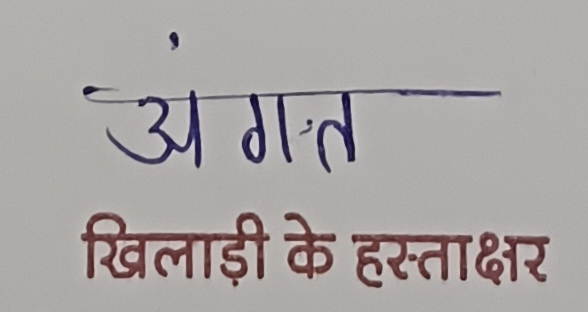 अंगत
खिलाड़ी के हस्ताक्षर